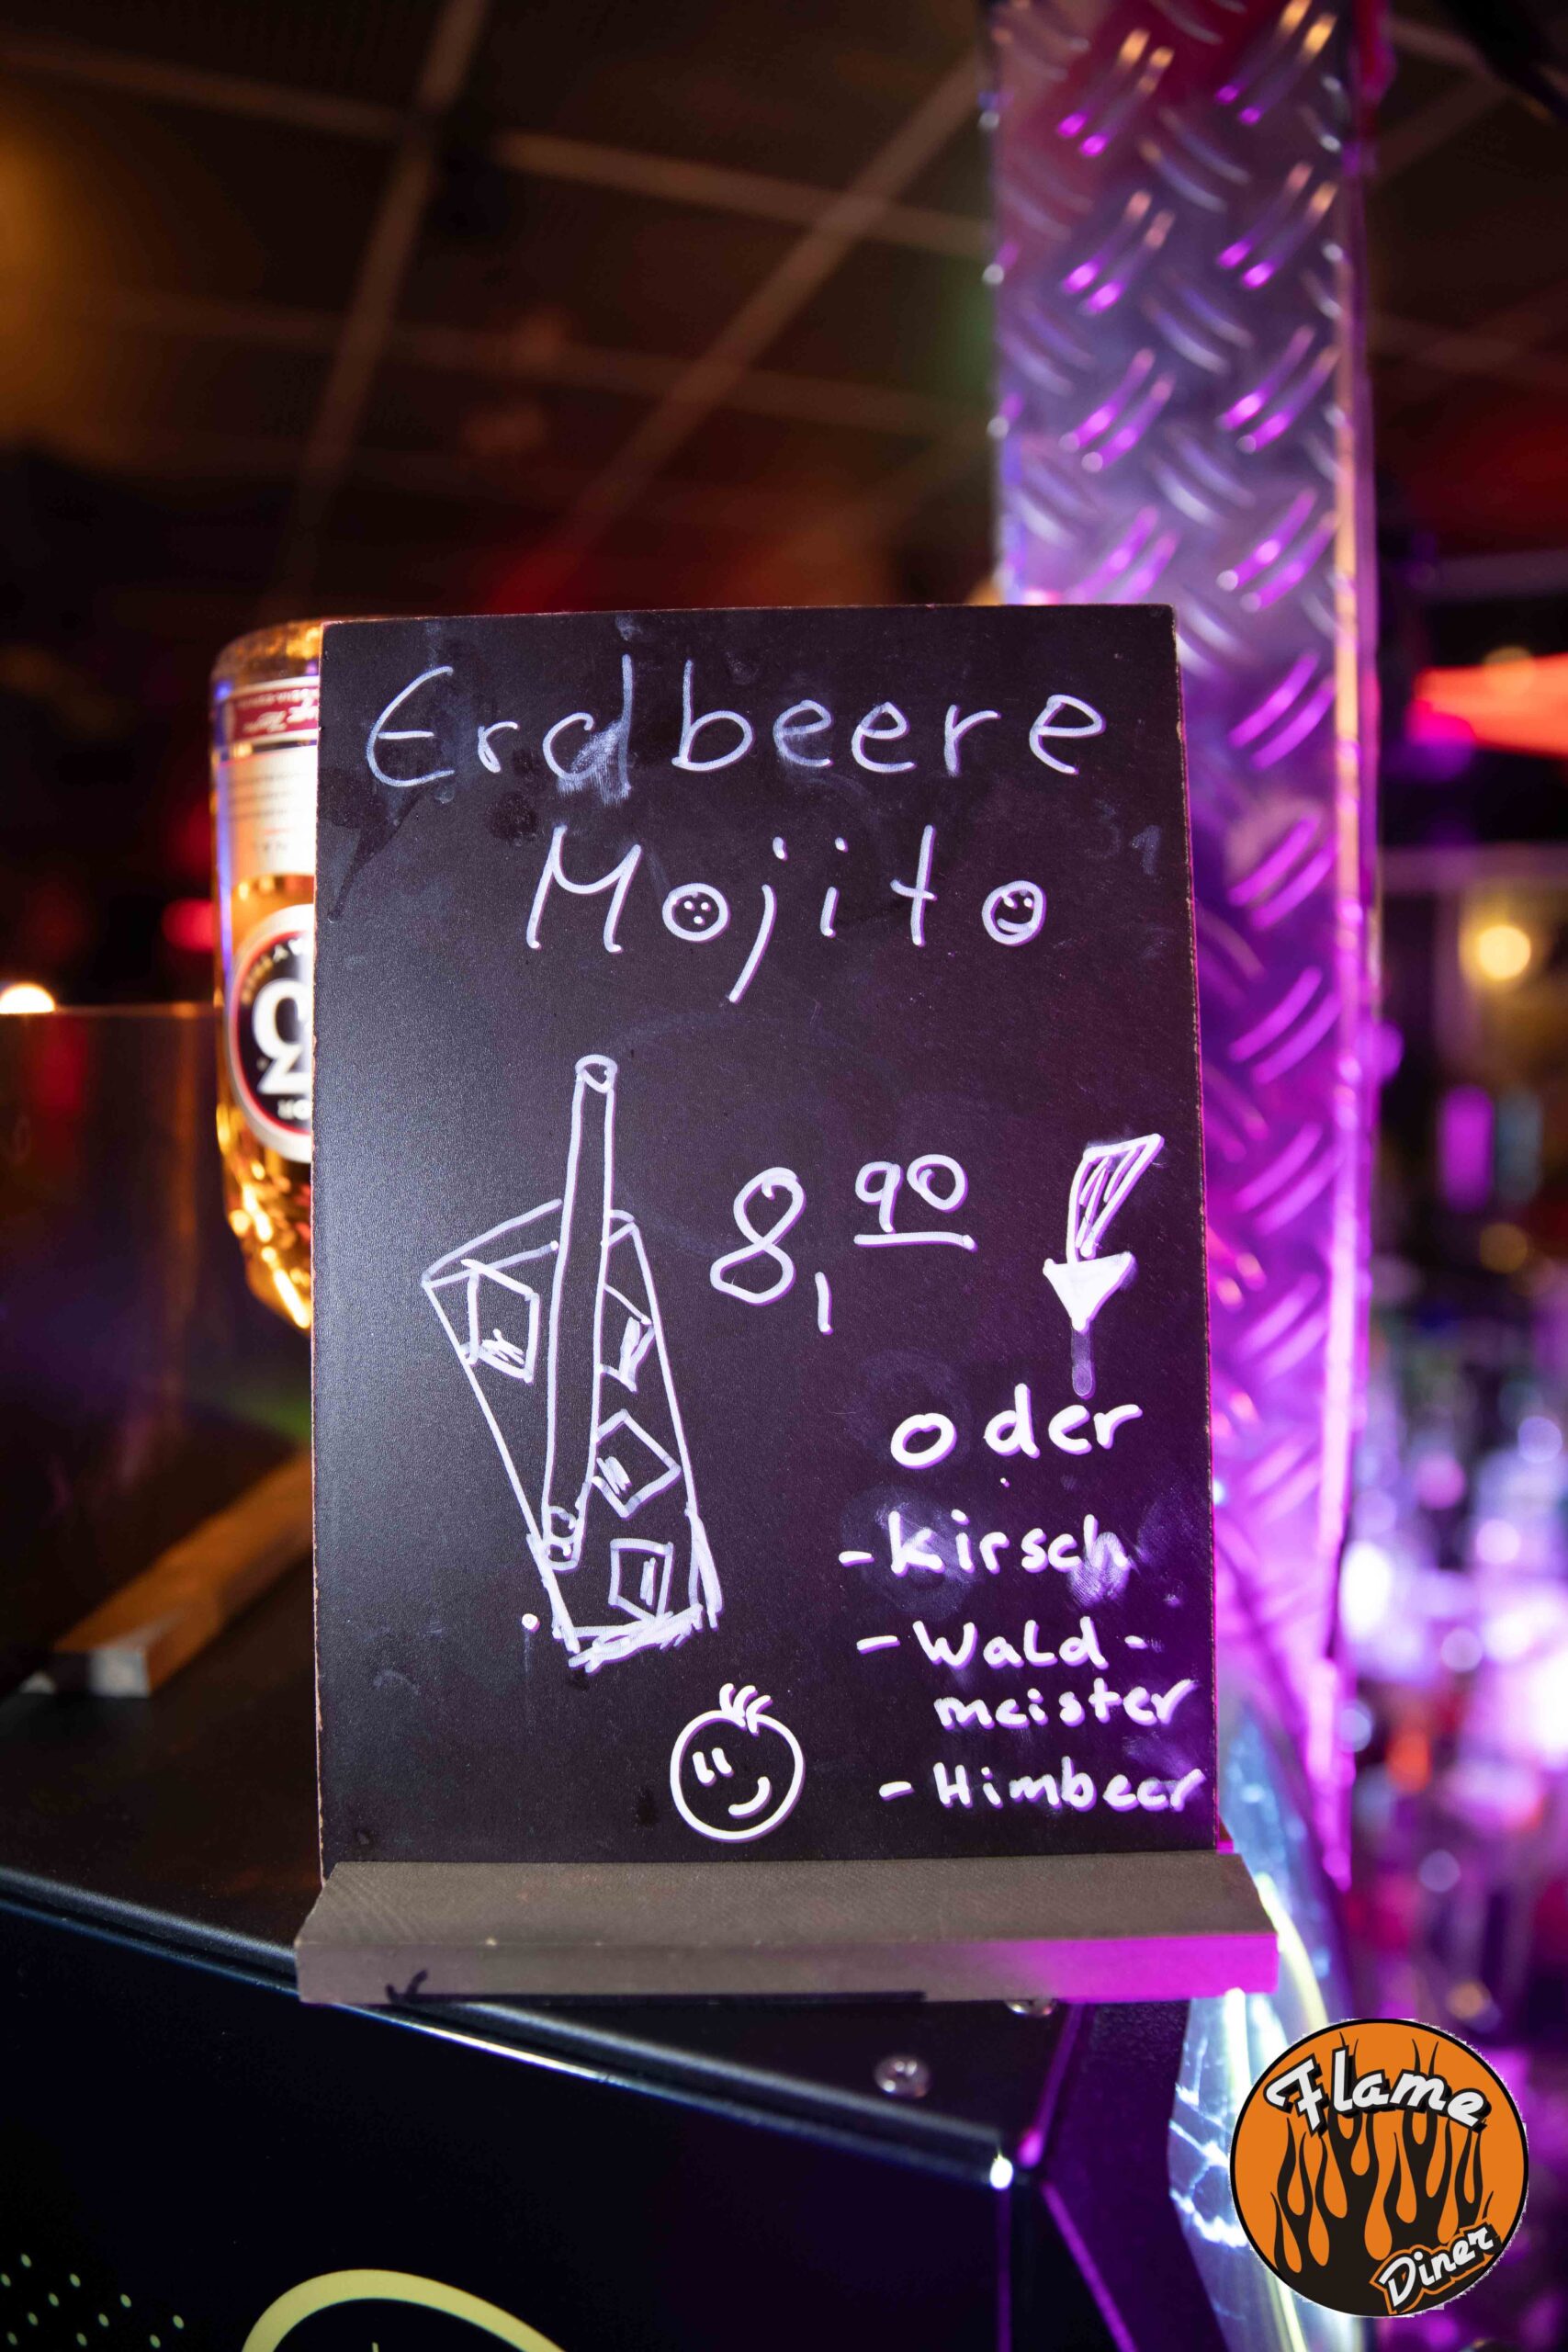 Erdbeere
Mojito
8,90
oder
- Kirsch
- Wald-
meister
- Himbeer
43
Flame
Diner